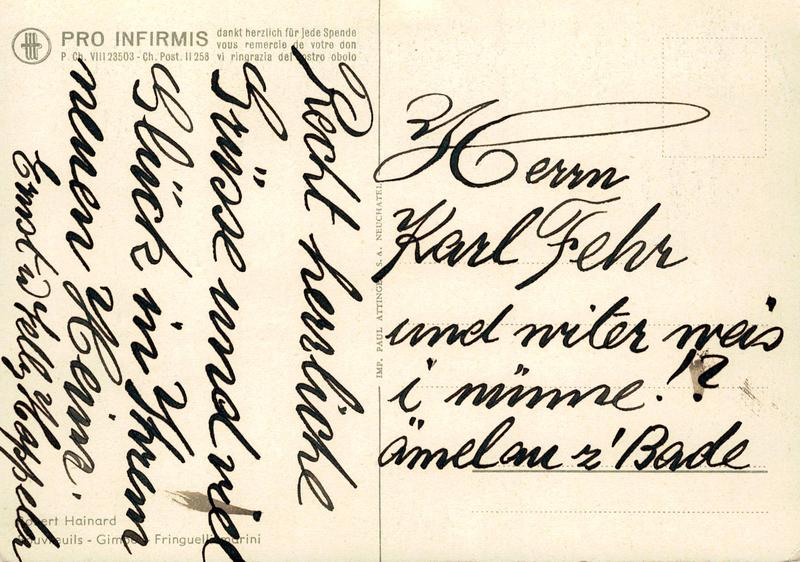 PRO INFIRMIS
dankt herzlich für jede Spende
vous remercie de votre don
vi ringrazia del vostro obolo
P. Ch. VIII 23503 - Ch. Post. II 258
Recht herzliche
Grüsse und viel
Glück in Ihrem
neuen Heim.
Ernst u Nelly
Herrn
Karl Fehr
und witer weis
i nümme!?
ämel au z'Bade
IMP. PAUL ATTINGER S.A. NEUCHATEL
Robert Hainard
Bouvreuils - Gimpel - Fringuelli marini